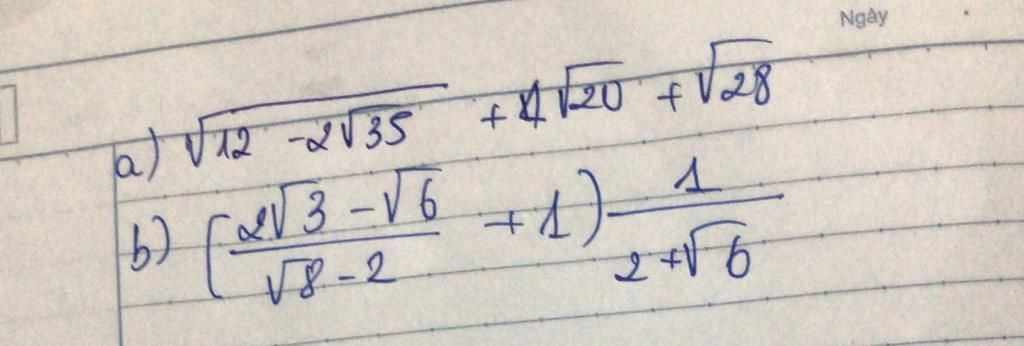 Ngày
a) √(12 - 2√35) + 4√20 + √28
b) ((2√3 - √6)/(√8 - 2) + 1) 1/(2 + √6)